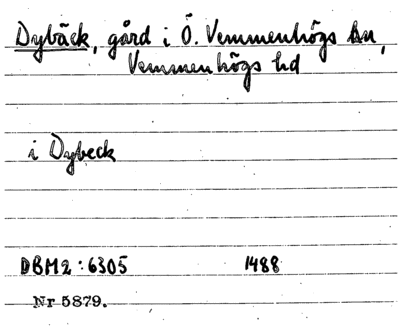 Dybäck, gård i Ö. Vemmenhögs sn,
Vemmenhögs hd
i Dybeck
DBM2:6305 1488
Nr 5879.